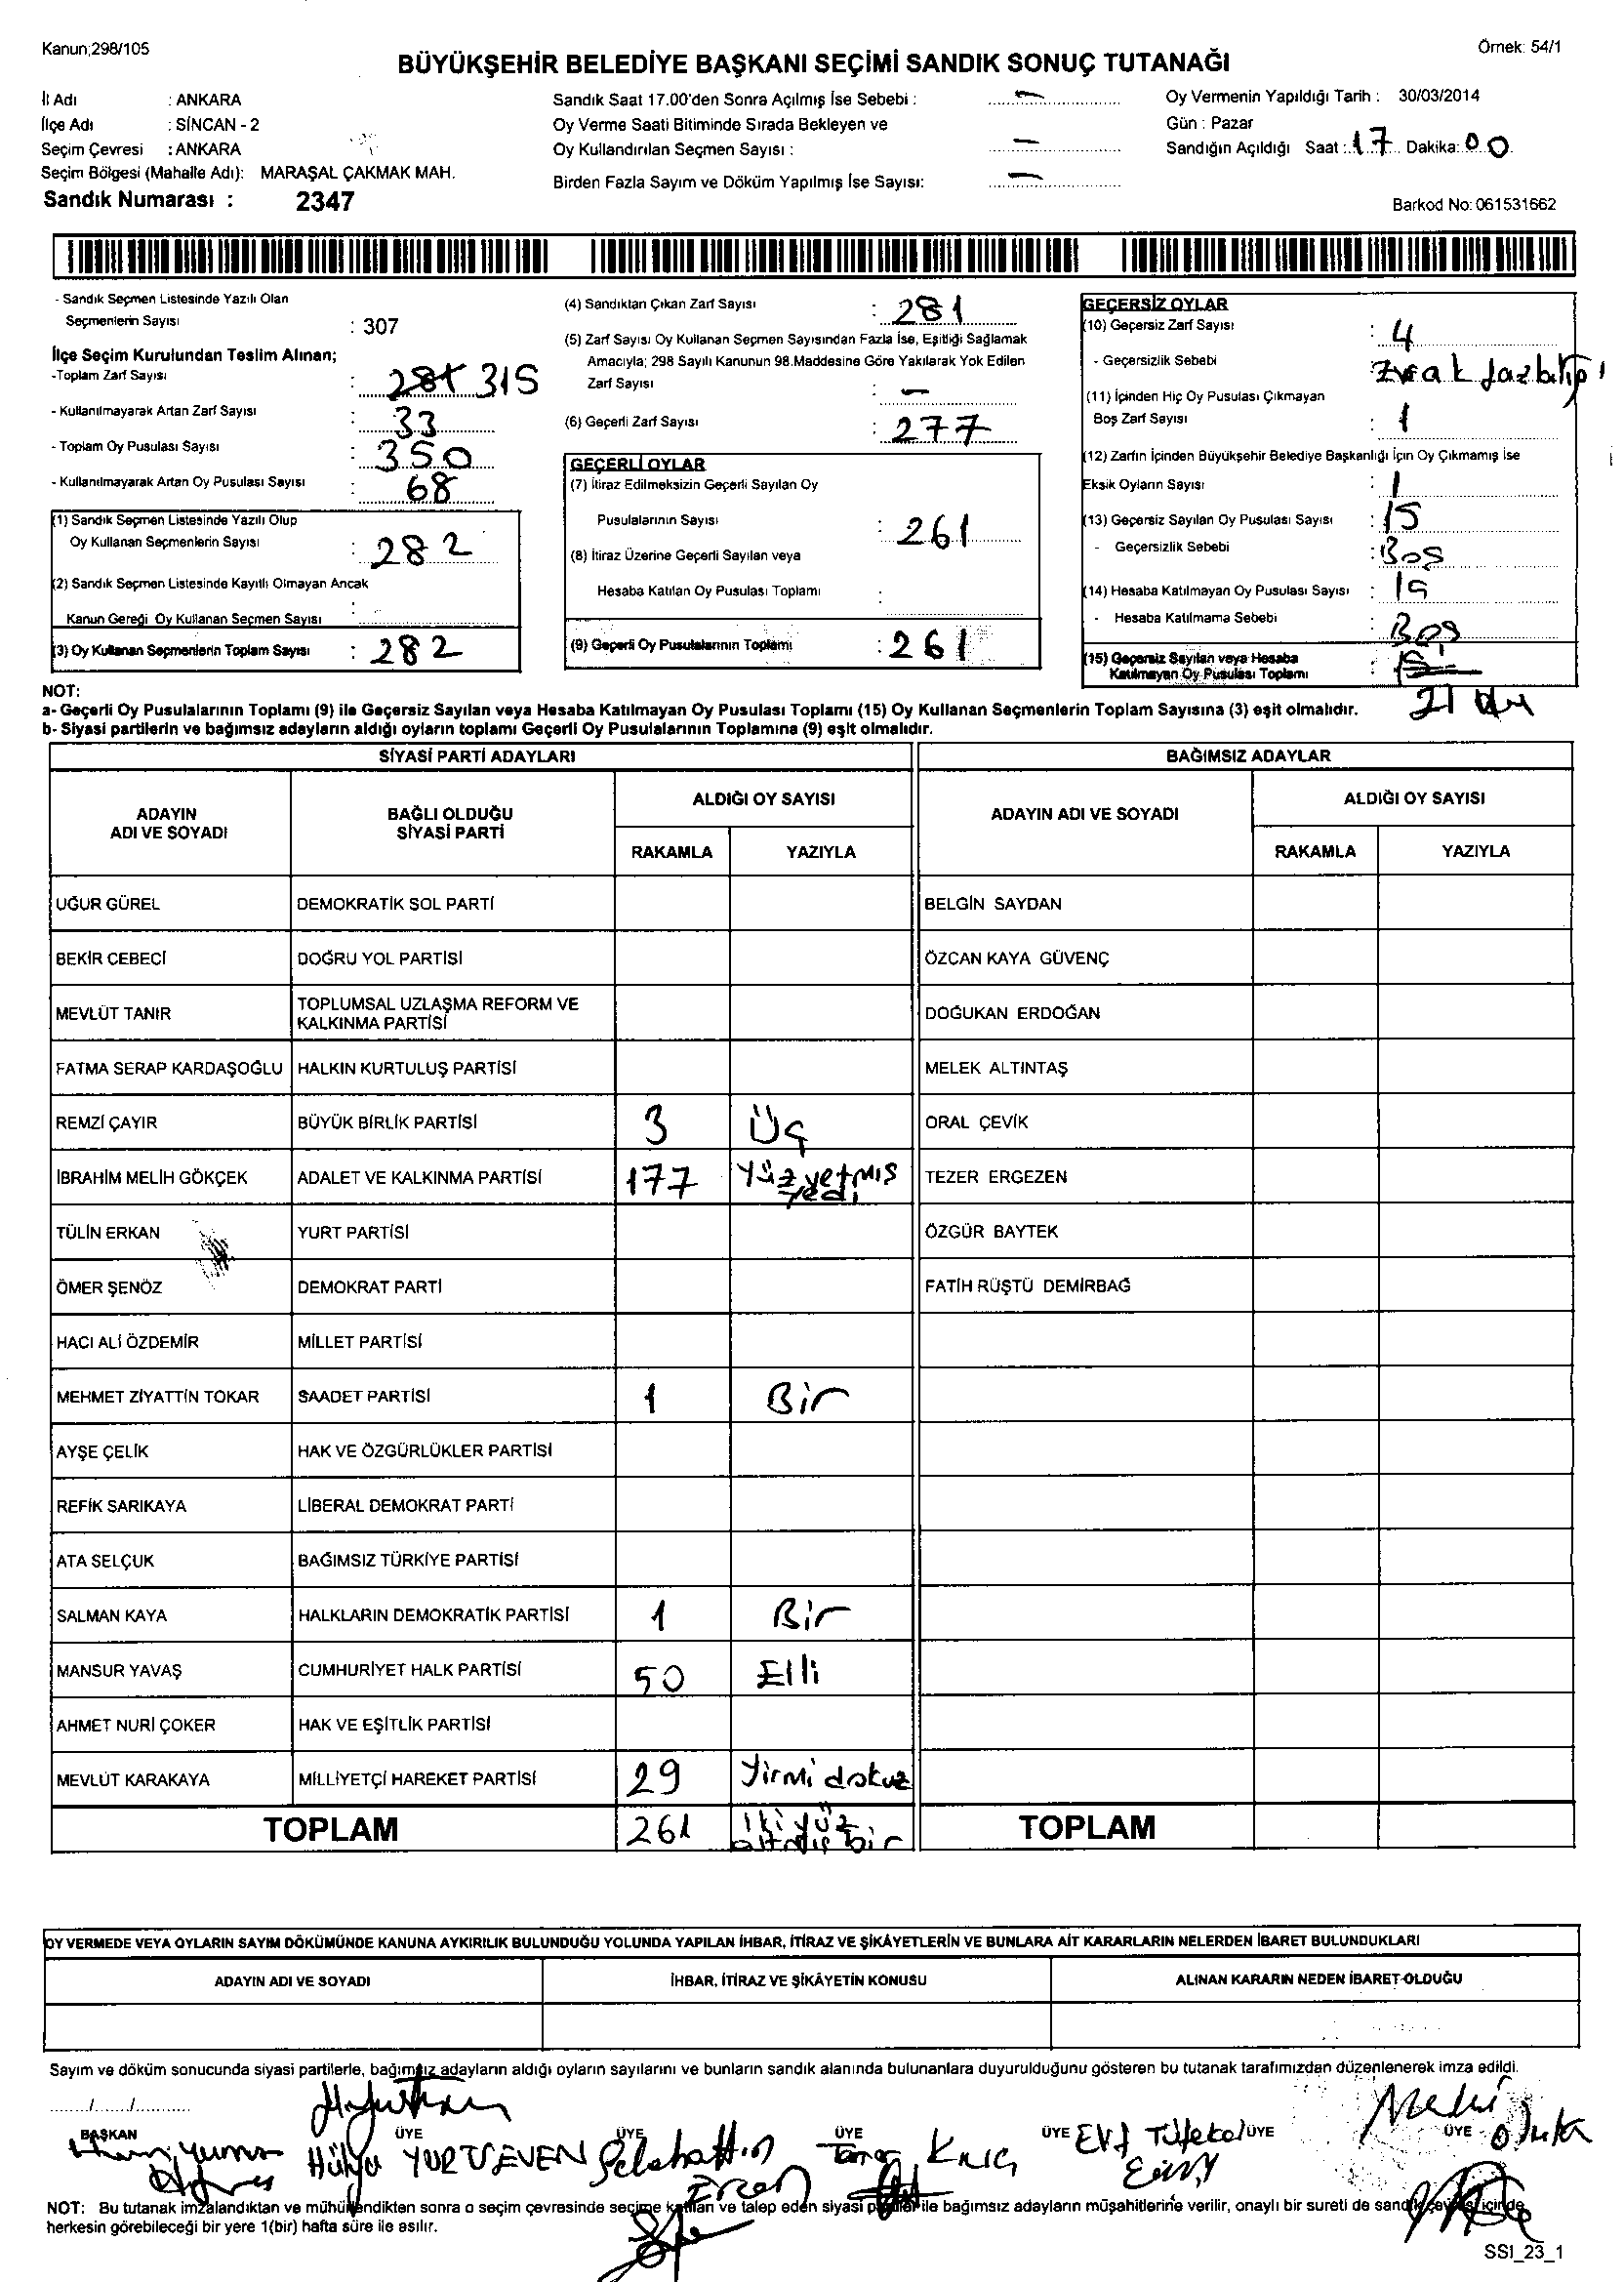 Kanun;298/105
Örnek: 54/1
BÜYÜKŞEHİR BELEDİYE BAŞKANI SEÇİMİ SANDIK SONUÇ TUTANAĞI
İl Adı : ANKARA
İlçe Adı : SİNCAN - 2
Seçim Çevresi : ANKARA
Seçim Bölgesi (Mahalle Adı): MARAŞAL ÇAKMAK MAH.
Sandık Numarası : 2347
Sandık Saat 17.00'den Sonra Açılmış İse Sebebi : —
Oy Verme Saati Bitiminde Sırada Bekleyen ve
Oy Kullandırılan Seçmen Sayısı : —
Birden Fazla Sayım ve Döküm Yapılmış İse Sayısı: —
Oy Vermenin Yapıldığı Tarih : 30/03/2014
Gün : Pazar
Sandığın Açıldığı Saat : 17 Dakika: 00
Barkod No: 061531662
- Sandık Seçmen Listesinde Yazılı Olan
Seçmenlerin Sayısı : 307
İlçe Seçim Kurulundan Teslim Alınan;
-Toplam Zarf Sayısı : 281 315
- Kullanılmayarak Artan Zarf Sayısı : 33
- Toplam Oy Pusulası Sayısı : 350
- Kullanılmayarak Artan Oy Pusulası Sayısı : 68
(1) Sandık Seçmen Listesinde Yazılı Olup
Oy Kullanan Seçmenlerin Sayısı : 282
(2) Sandık Seçmen Listesinde Kayıtlı Olmayan Ancak
Kanun Gereği Oy Kullanan Seçmen Sayısı :
(3) Oy Kullanan Seçmenlerin Toplam Sayısı : 282
(4) Sandıktan Çıkan Zarf Sayısı : 281
(5) Zarf Sayısı Oy Kullanan Seçmen Sayısından Fazla İse, Eşitliği Sağlamak
Amacıyla; 298 Sayılı Kanunun 98.Maddesine Göre Yakılarak Yok Edilen
Zarf Sayısı : —
(6) Geçerli Zarf Sayısı : 277
GEÇERLİ OYLAR
(7) İtiraz Edilmeksizin Geçerli Sayılan Oy
Pusulalarının Sayısı : 261
(8) İtiraz Üzerine Geçerli Sayılan veya
Hesaba Katılan Oy Pusulası Toplamı :
(9) Geçerli Oy Pusulalarının Toplamı : 261
GEÇERSİZ OYLAR
(10) Geçersiz Zarf Sayısı : 4
- Geçersizlik Sebebi
(11) İçinden Hiç Oy Pusulası Çıkmayan
Boş Zarf Sayısı : 1
(12) Zarfın İçinden Büyükşehir Belediye Başkanlığı İçin Oy Çıkmamış ise
Eksik Oyların Sayısı : 1
(13) Geçersiz Sayılan Oy Pusulası Sayısı : 15
- Geçersizlik Sebebi : Boş
(14) Hesaba Katılmayan Oy Pusulası Sayısı : 15
- Hesaba Katılmama Sebebi : Boş
(15) Geçersiz Sayılan veya Hesaba
Katılmayan Oy Pusulası Toplamı : 15
21
NOT:
a- Geçerli Oy Pusulalarının Toplamı (9) ile Geçersiz Sayılan veya Hesaba Katılmayan Oy Pusulası Toplamı (15) Oy Kullanan Seçmenlerin Toplam Sayısına (3) eşit olmalıdır.
b- Siyasi partilerin ve bağımsız adayların aldığı oyların toplamı Geçerli Oy Pusulalarının Toplamına (9) eşit olmalıdır.
SİYASİ PARTİ ADAYLARI
BAĞIMSIZ ADAYLAR
ADAYIN ADI VE SOYADI
BAĞLI OLDUĞU SİYASİ PARTİ
ALDIĞI OY SAYISI
RAKAMLA YAZIYLA
ADAYIN ADI VE SOYADI
ALDIĞI OY SAYISI
RAKAMLA YAZIYLA
UĞUR GÜREL DEMOKRATİK SOL PARTİ BELGİN SAYDAN
BEKİR CEBECİ DOĞRU YOL PARTİSİ ÖZCAN KAYA GÜVENÇ
MEVLÜT TANIR TOPLUMSAL UZLAŞMA REFORM VE KALKINMA PARTİSİ DOĞUKAN ERDOĞAN
FATMA SERAP KARDAŞOĞLU HALKIN KURTULUŞ PARTİSİ MELEK ALTINTAŞ
REMZİ ÇAYIR BÜYÜK BİRLİK PARTİSİ 3 Üç ORAL ÇEVİK
İBRAHİM MELİH GÖKÇEK ADALET VE KALKINMA PARTİSİ 177 Yüzyetmiş yedi TEZER ERGEZEN
TÜLİN ERKAN YURT PARTİSİ ÖZGÜR BAYTEK
ÖMER ŞENÖZ DEMOKRAT PARTİ FATİH RÜŞTÜ DEMİRBAĞ
HACI ALİ ÖZDEMİR MİLLET PARTİSİ
MEHMET ZİYATTİN TOKAR SAADET PARTİSİ 1 Bir
AYŞE ÇELİK HAK VE ÖZGÜRLÜKLER PARTİSİ
REFİK SARIKAYA LİBERAL DEMOKRAT PARTİ
ATA SELÇUK BAĞIMSIZ TÜRKİYE PARTİSİ
SALMAN KAYA HALKLARIN DEMOKRATİK PARTİSİ 1 Bir
MANSUR YAVAŞ CUMHURİYET HALK PARTİSİ 50 Elli
AHMET NURİ ÇOKER HAK VE EŞİTLİK PARTİSİ
MEVLÜT KARAKAYA MİLLİYETÇİ HAREKET PARTİSİ 29 Yirmi dokuz
TOPLAM 261 iki yüz altmış bir TOPLAM
OY VERMEDE VEYA OYLARIN SAYIM DÖKÜMÜNDE KANUNA AYKIRILIK BULUNDUĞU YOLUNDA YAPILAN İHBAR, İTİRAZ VE ŞİKÂYETLERİN VE BUNLARA AİT KARARLARIN NELERDEN İBARET BULUNDUKLARI
ADAYIN ADI VE SOYADI İHBAR, İTİRAZ VE ŞİKÂYETİN KONUSU ALINAN KARARIN NEDEN İBARET OLDUĞU
Sayım ve döküm sonucunda siyasi partilerle, bağımsız adayların aldığı oyların sayılarını ve bunların sandık alanında bulunanlara duyurulduğunu gösteren bu tutanak tarafımızdan düzenlenerek imza edildi.
....../....../..........
BAŞKAN ÜYE ÜYE ÜYE ÜYE ÜYE ÜYE
Hülya YURTSEVEN Selahattin
NOT: Bu tutanak imzalandıktan ve mühürlendikten sonra o seçim çevresinde seçime katılan ve talep eden siyasi partiler ile bağımsız adayların müşahitlerine verilir, onaylı bir sureti de sandık çevresi içinde
herkesin görebileceği bir yere 1(bir) hafta süre ile asılır.
SSI_23_1